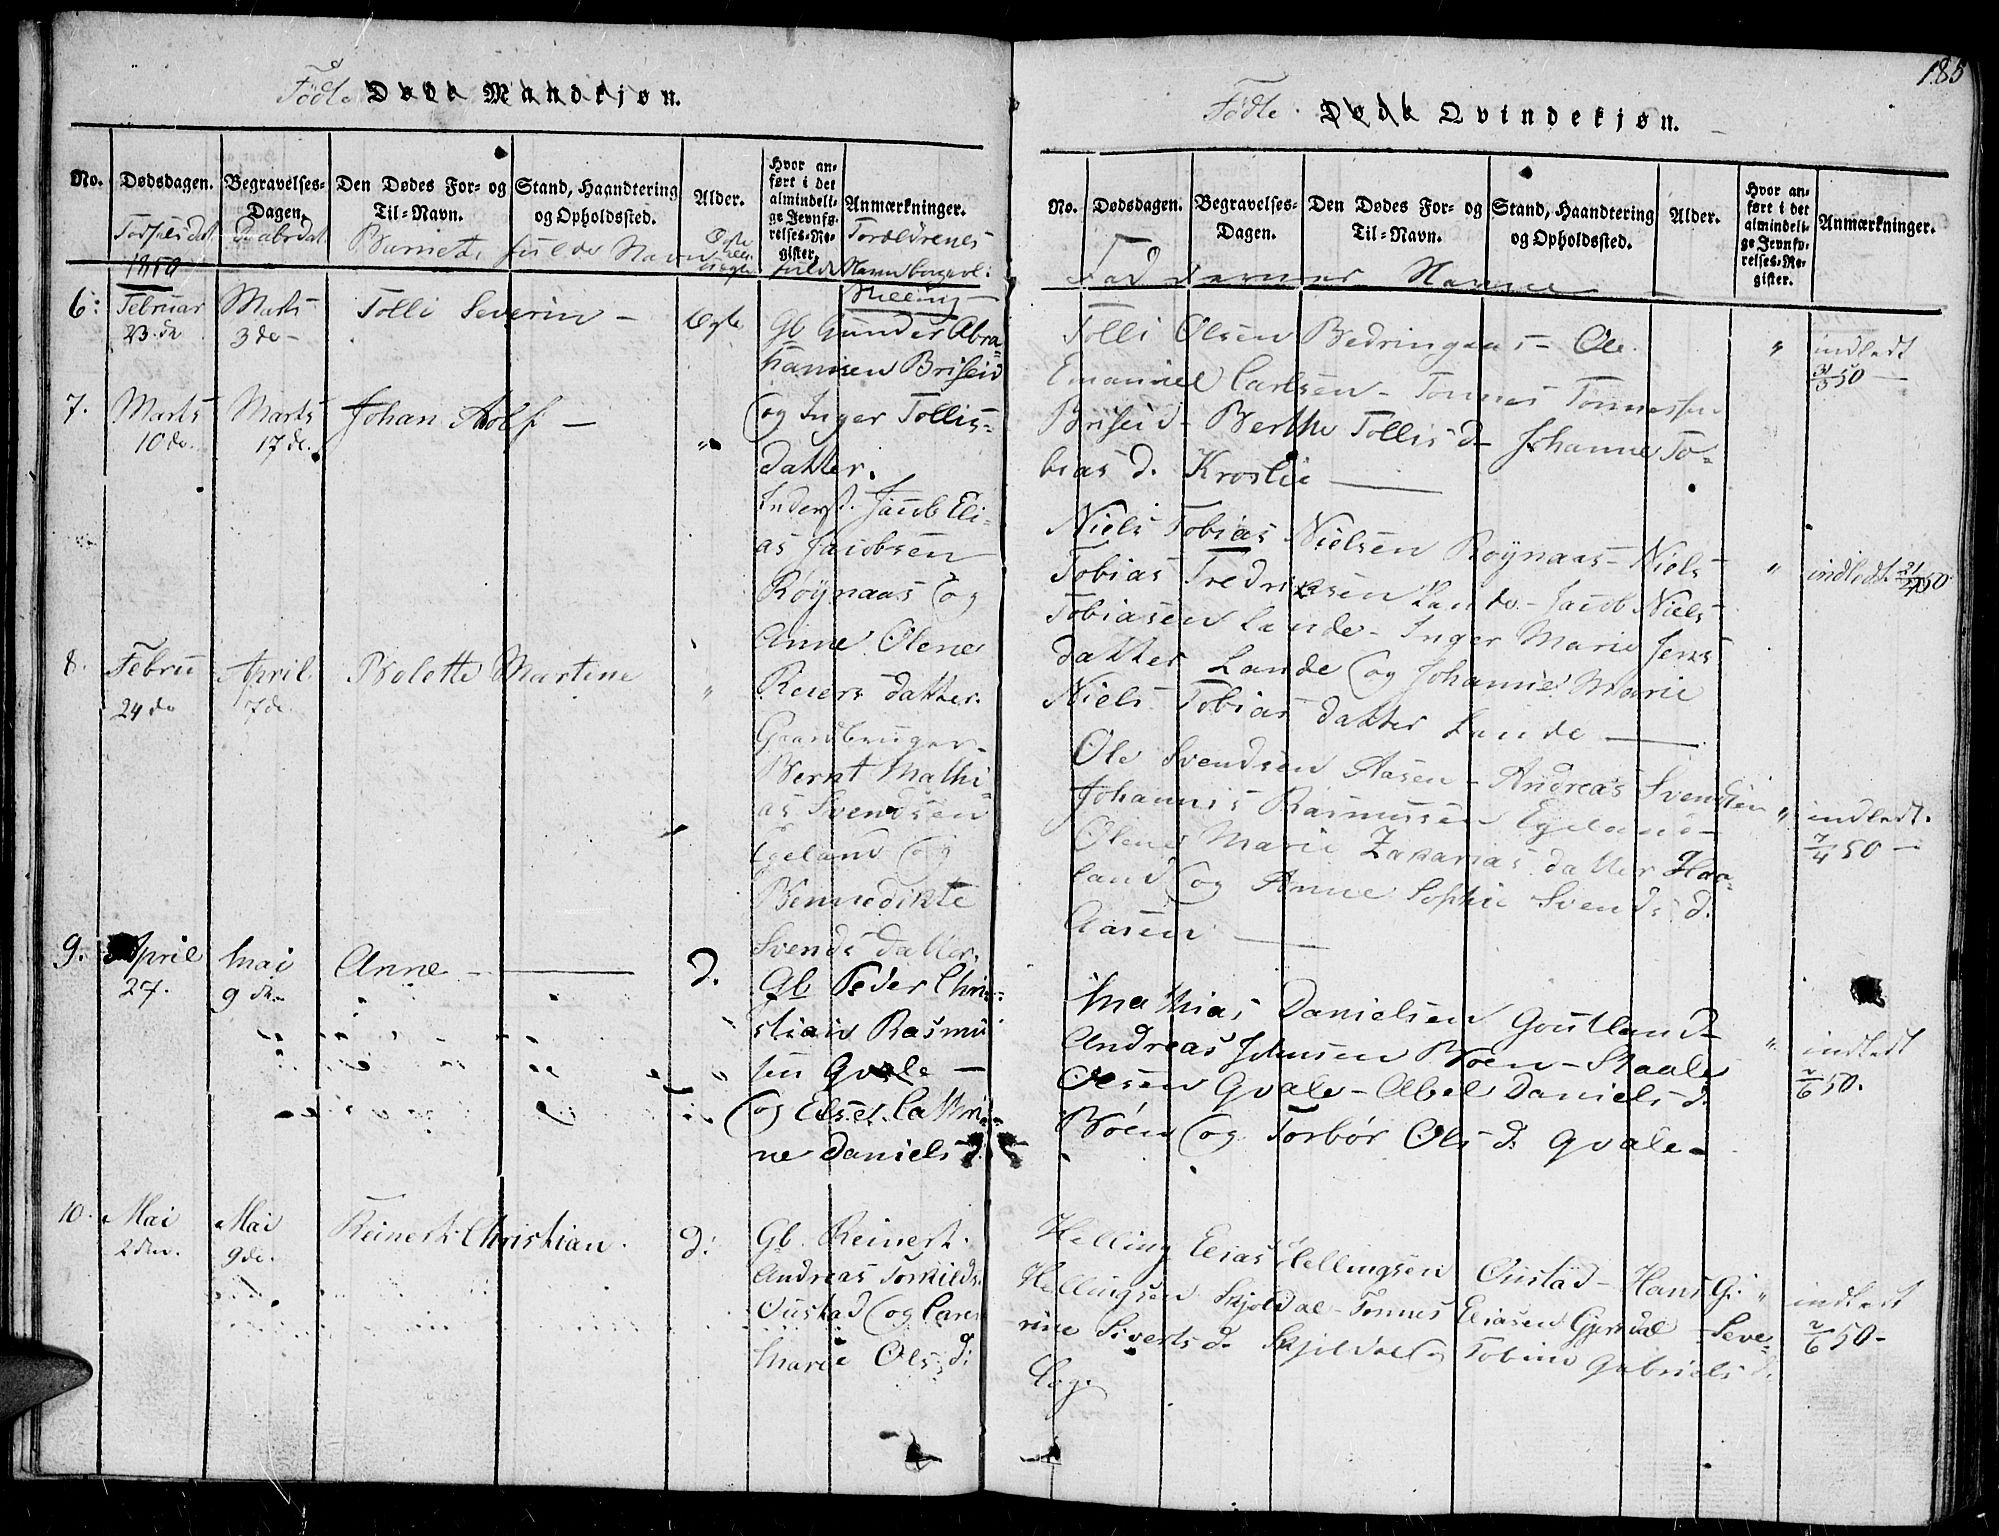 185
Fødte Døde Mandkjøn.
No.
Dødsdagen.
Begravelses-Dagen.
Den Dødes For- og Til-Navn.
Stand, Haandtering og Opholdssted.
Alder.
Hvor anført i det almindelige Jevnførelses-Register.
Anmærkninger.
Fødselsdat.
Daabsdat.
Barnets fulde Navn
Ægte eller uægte
Forældrenes
fulde Navn
Stilling
1850
6: Februar 23 de
Marts 3 de
Tolli Severin
Ægte
Gb Gunder Abra=
hamsen Briseid
og Inger Tollis=
datter.
7. Marts 10 de.
Marts 17 de.
Johan Adolf
"
Inderst. Jacob Eli=
as Jacobsen
Röynaas og
Anne Olene
Reiers datter.
8. Febru 24 de
April 7 de.
Bolette Martine
"
Gaardbruger
Bernt Mathi=
as Svendsen
Egeland og
Bennedikte
Svends datter.
9. April 27.
Mai 9 de.
Anne
d.
Gb Peder Chri=
stian Rasmu
sen Qvale
og Else Cathri=
ne Daniels d.
10. Mai 2 den.
Mai 9 de.
Reinert Christian.
d:
Gb. Reinert
Andreas Torkilds.
Oustad og Caren
Marie Ols: d:
Fødte. Døde Qvindekjøn.
No.
Dødsdagen.
Begravelses-Dagen.
Den Dødes For- og Til-Navn.
Stand, Haandtering og Opholdssted.
Alder.
Hvor anført i det almindelige Jevnførelses-Register.
Anmærkninger.
Faddernes Navne
Tolli Olsen Bedringaas - Ole
Emanuel Carlsen - Tonnes Tonnessen
Briseid - Berthe Tollis d - Johanne To=
bias d. Kroslie
" indledt 31/3 50
Niels Tobias Nielsen Röynaas - Niels
Tobias Fredriksen Lande - Jacob Niels
Tobiasen Lande - Inger Marie Jens
datter Lande og Johanne Marie
Niels Tobias datter Lande
" indledt. 50
Ole Svendsen Aasen - Andreas Svendsen
Johannis Rasmussen Egeland
Olene Marie Zakarias datter Haa=
land og Anne Sophie Svends d.
Aasen
" indledt. 7/4 50
Mathias Danielsen Goutland
Andreas Jensen Böen - Staale
Olsen Qvale - Abel Daniels d.
Böen og Torbör Ols d. Qvale
" indledt 2/6 50.
Helling Elias Hellingsen Oustad - Hans G.
Hellingsen Skjoldal - Tonnes Eliasen Gjersdal - Seve=
rine Siverts d. Skjoldal og Tobine Gabriels d.
" indledt 2/6 50